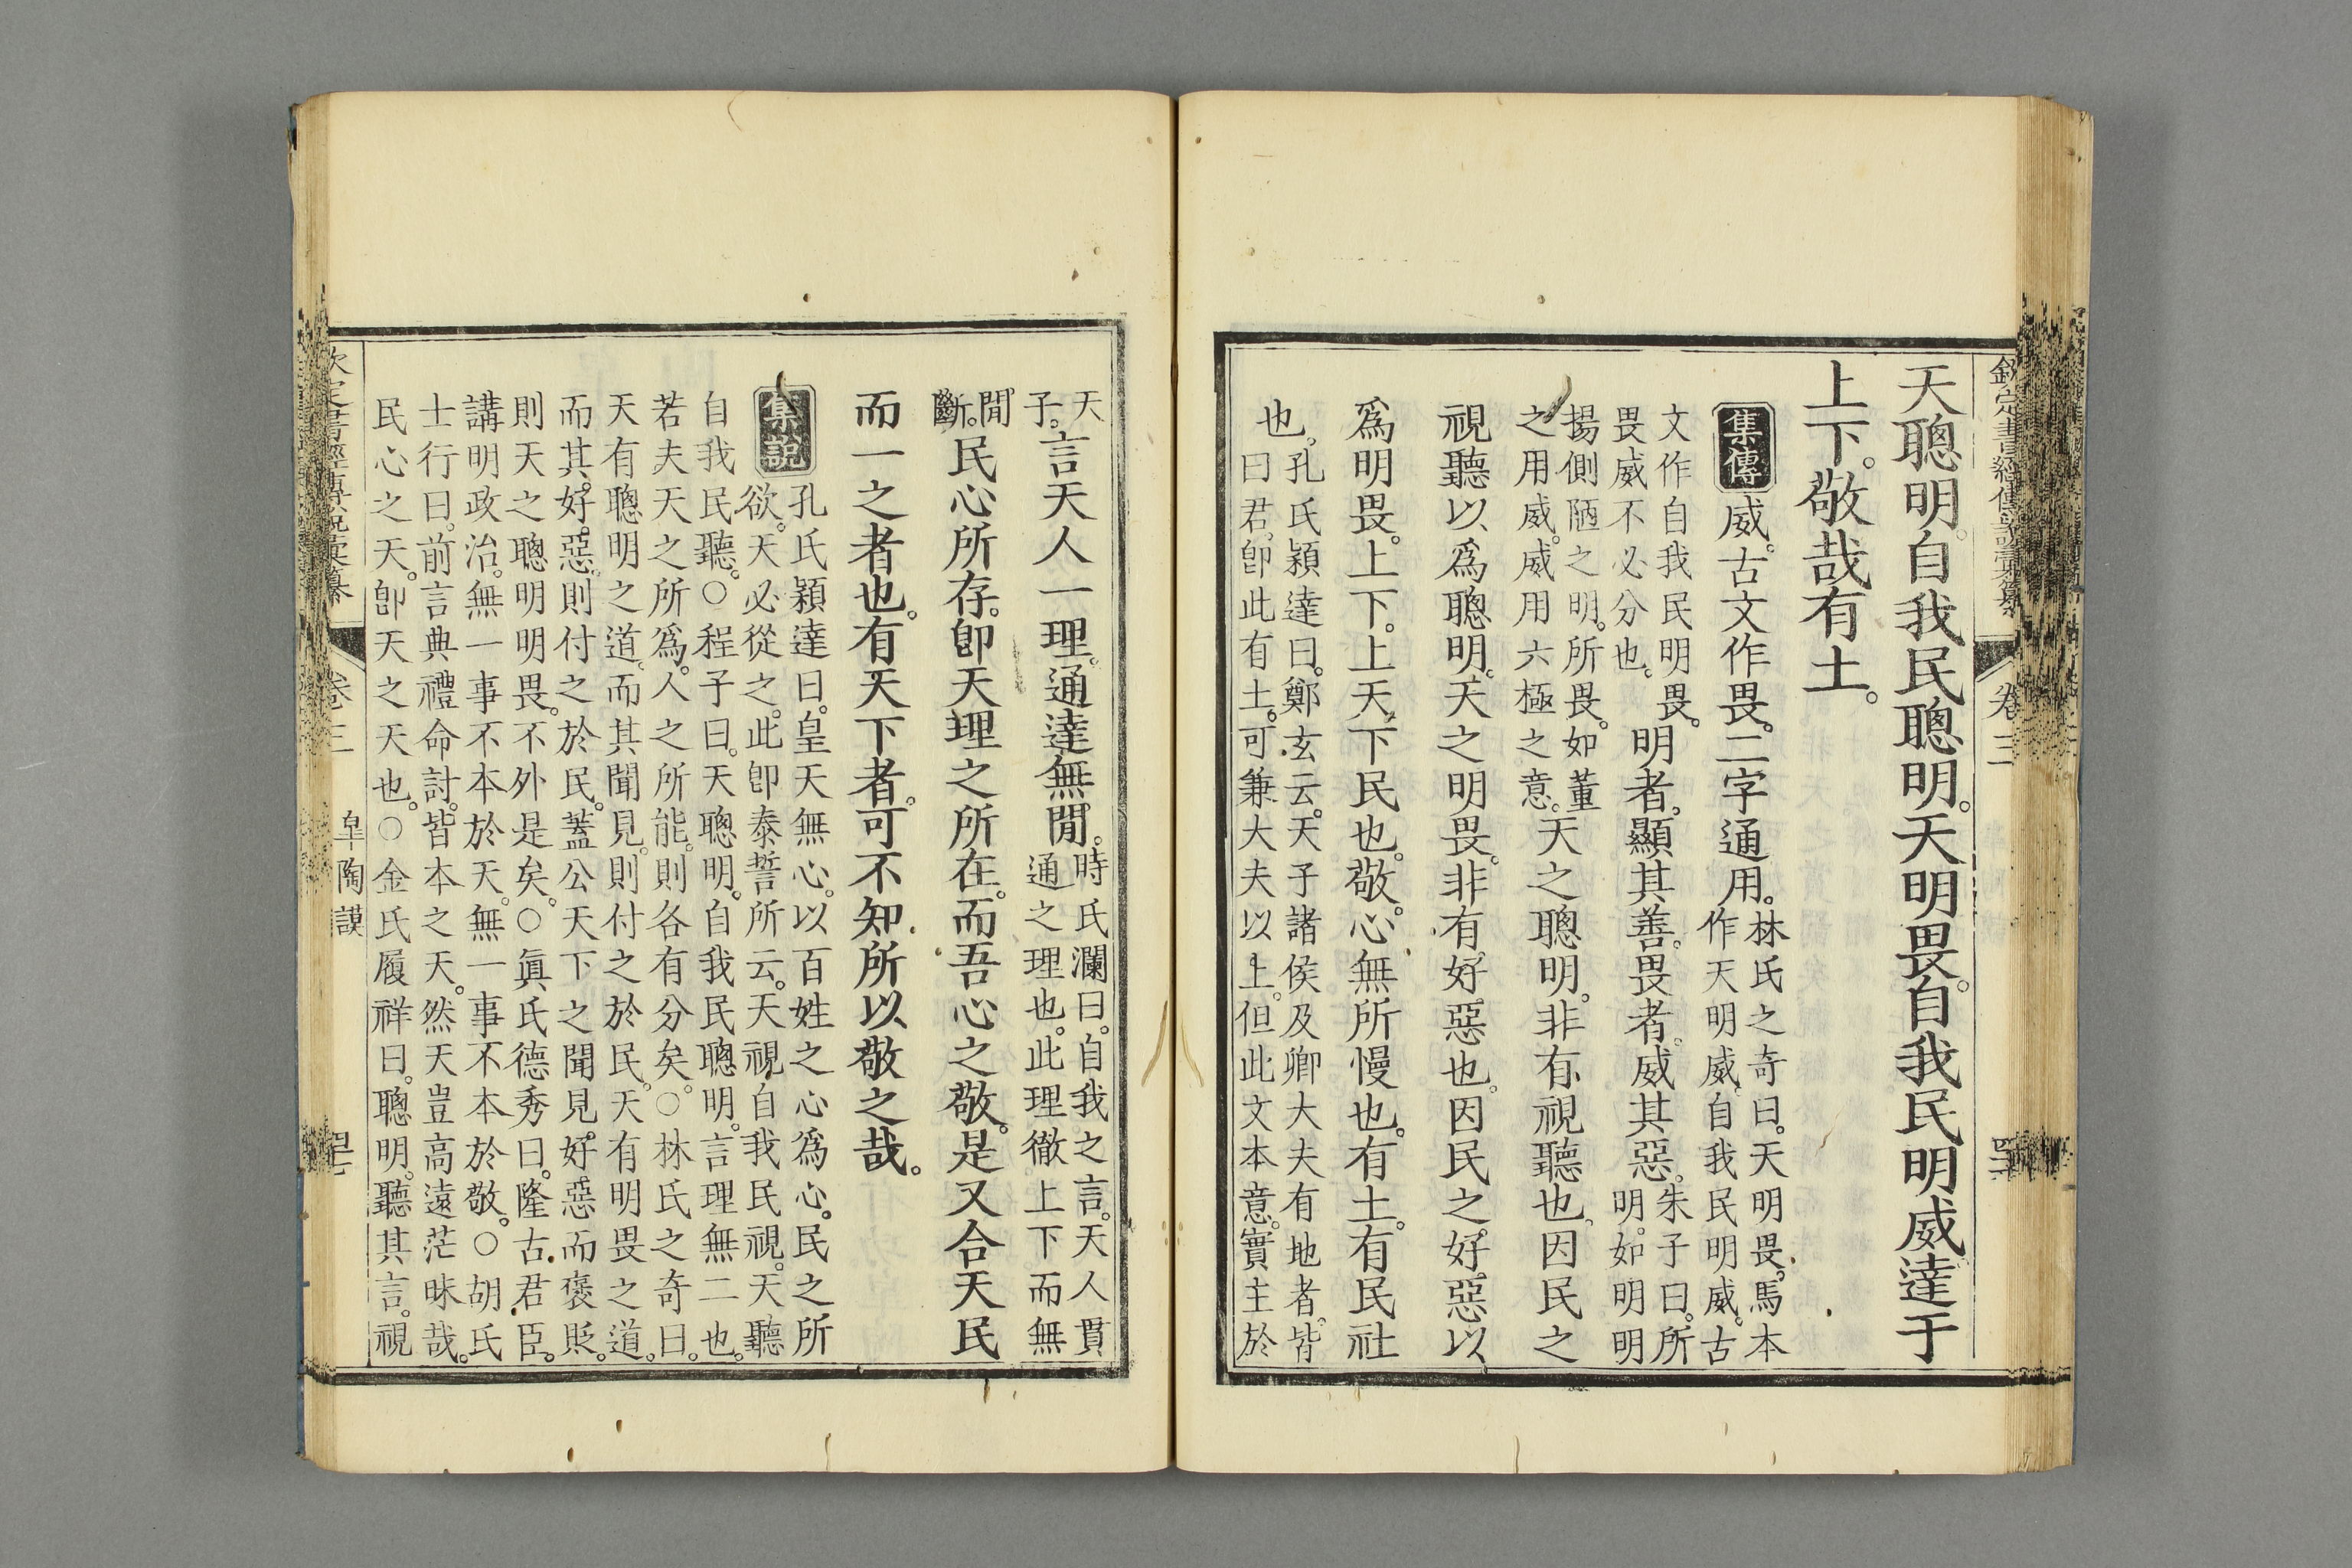 欽定書經傳說彙纂 卷三
天聰明。自我民聰明。天明畏。自我民明威。達于
上下。敬哉有土。
集傳 威。古文作畏。二字通用。林氏之奇曰。天明畏。馬本
作天明威。自我民明威。古
文作自我民明畏。
畏威不必分也。明者。顯其善。畏者。威其惡。朱子曰。所
明。如明明
揚側陋之明。所畏。如董
之用威。威用六極之意。天之聰明。非有視聽也。因民之
視聽以爲聰明。天之明畏。非有好惡也。因民之好惡以
爲明畏。上下。上天下民也。敬。心無所慢也。有土。有民社
也。孔氏穎達曰。鄭玄云。天子諸侯及卿大夫有地者。皆
曰君。卽此有土。可兼大夫以上。但此文本意。實主於
天
子。言天人一理。通達無閒。時氏瀾曰。自我之言。天人貫
通之理也。此理徹上下而無
閒
斷。民心所存。卽天理之所在。而吾心之敬。是又合天民
而一之者也。有天下者。可不知所以敬之哉。
集說 孔氏穎達曰。皇天無心。以百姓之心爲心。民之所
欲。天必從之。此卽泰誓所云。天視自我民視。天聽
自我民聽。○程子曰。天聰明。自我民聰明。言理無二也。
若夫天之所爲。人之所能。則各有分矣。○林氏之奇曰。
天有聰明之道。而其聞見。則付之於民。天有明畏之道。
而其好惡。則付之於民。蓋公天下之聞見好惡而褒貶。
則天之聰明明畏。不外是矣。○眞氏德秀曰。隆古君臣。
講明政治。無一事不本於天。無一事不本於敬。○胡氏
士行曰。前言典禮命討。皆本之天。然天豈高遠茫昧哉。
民心之天。卽天之天也。○金氏履祥曰。聰明。聽其言。視
欽定書經傳說彙纂 卷三 皐陶謨